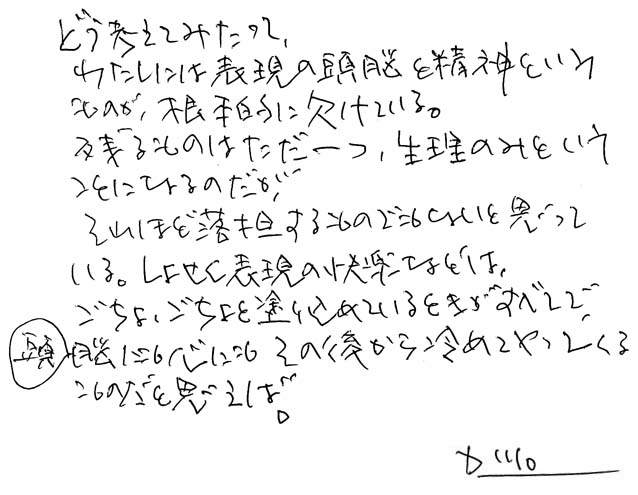 どう考えてみたって、
わたしには表現の頭脳と精神という
ものが、根本的に欠けている。
残るものはただ一つ、生理のみという
ことになるのだが、
それほど落胆するものでもないと思って
いる。しょせん表現の快楽などは、
ごちょごちょと塗り込めているときがすべてで
頭脳にも心にもその後から冷めてやってくる
ものだと思えば。